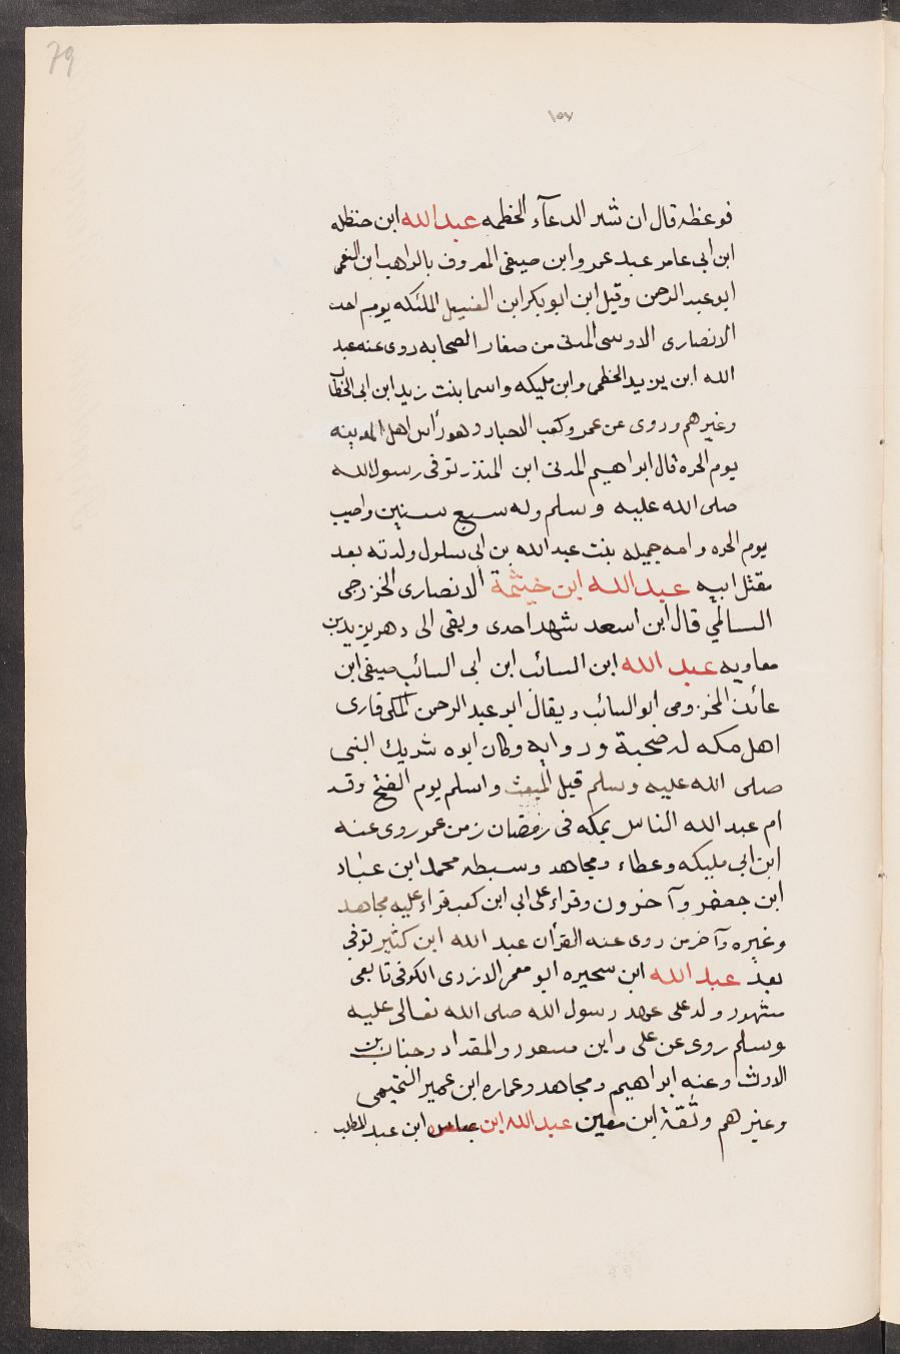 79
١٥٧
فوعظه قال ان شر الدعآء الحطمه عبد الله ابن حنظله
ابن ابى عامر عبد عمرو ابن صيفى المعروف بالراهب ابن
ابو عبد الرحمن وقيل ابن ابو بكر ابن الغسيل الملئكه يوم احد
الانصارى الاوسى المدنى من صغار الصحابه روى عنه عبد
الله ابن يزيد الخطمى وابن مليكه واسما بنت زيد ابن ابى الخطاب
وغيرهم وروى عن عمر وكعب الاحبار وهو رأس اهل المدينه
يوم الحره قال ابراهيم المدنى ابن المنذر توفى رسول الله
صلى الله عليه وسلم وله سبع سنين واصيب
يوم الحره وامه جميله بنت عبد الله بن ابى سلول ولدته بعد
مقتل ابيه عبد الله ابن خيثمة الانصارى الخزرجى
السالمي قال ابن اسعد شهد احدى وبقى الى دهر يزيد بن
معاويه عبد الله ابن السائب ابن ابى السائب صيفى ابن
عائد المخزومى ابو السائب ويقال ابو عبد الرحمن المكى قارى
اهل مكه له صحبة وروايه وكان ابوه شريك النبى
صلى الله عليه وسلم قبل المبعث واسلم يوم الفتح وقد
ام عبد الله الناس بمكه فى رمضان زمن عمر روى عنه
ابن ابى مليكه وعطاء ومجاهد وسبطه محمد ابن عباد
ابن جعفر وآخرون وقراء على ابى ابن كعب قراء عليه مجاهد
وغيره وآخر من روى عنه القرأن عبد الله ابن كثير توفى
بعد عبد الله ابن سخبره ابو معمر الازدى الكوفى تابعى
مشهور ولد على عهد رسول الله صلى الله تعالى عليه
وسلم روى عن على وابن مسعود والمقداد وخباب بن
الارث وعنه ابراهيم ومجاهد وعماره ابن عمير التميمى
وغيرهم وثقة ابن معين عبد الله ابن عباس ابن عبد المطلب